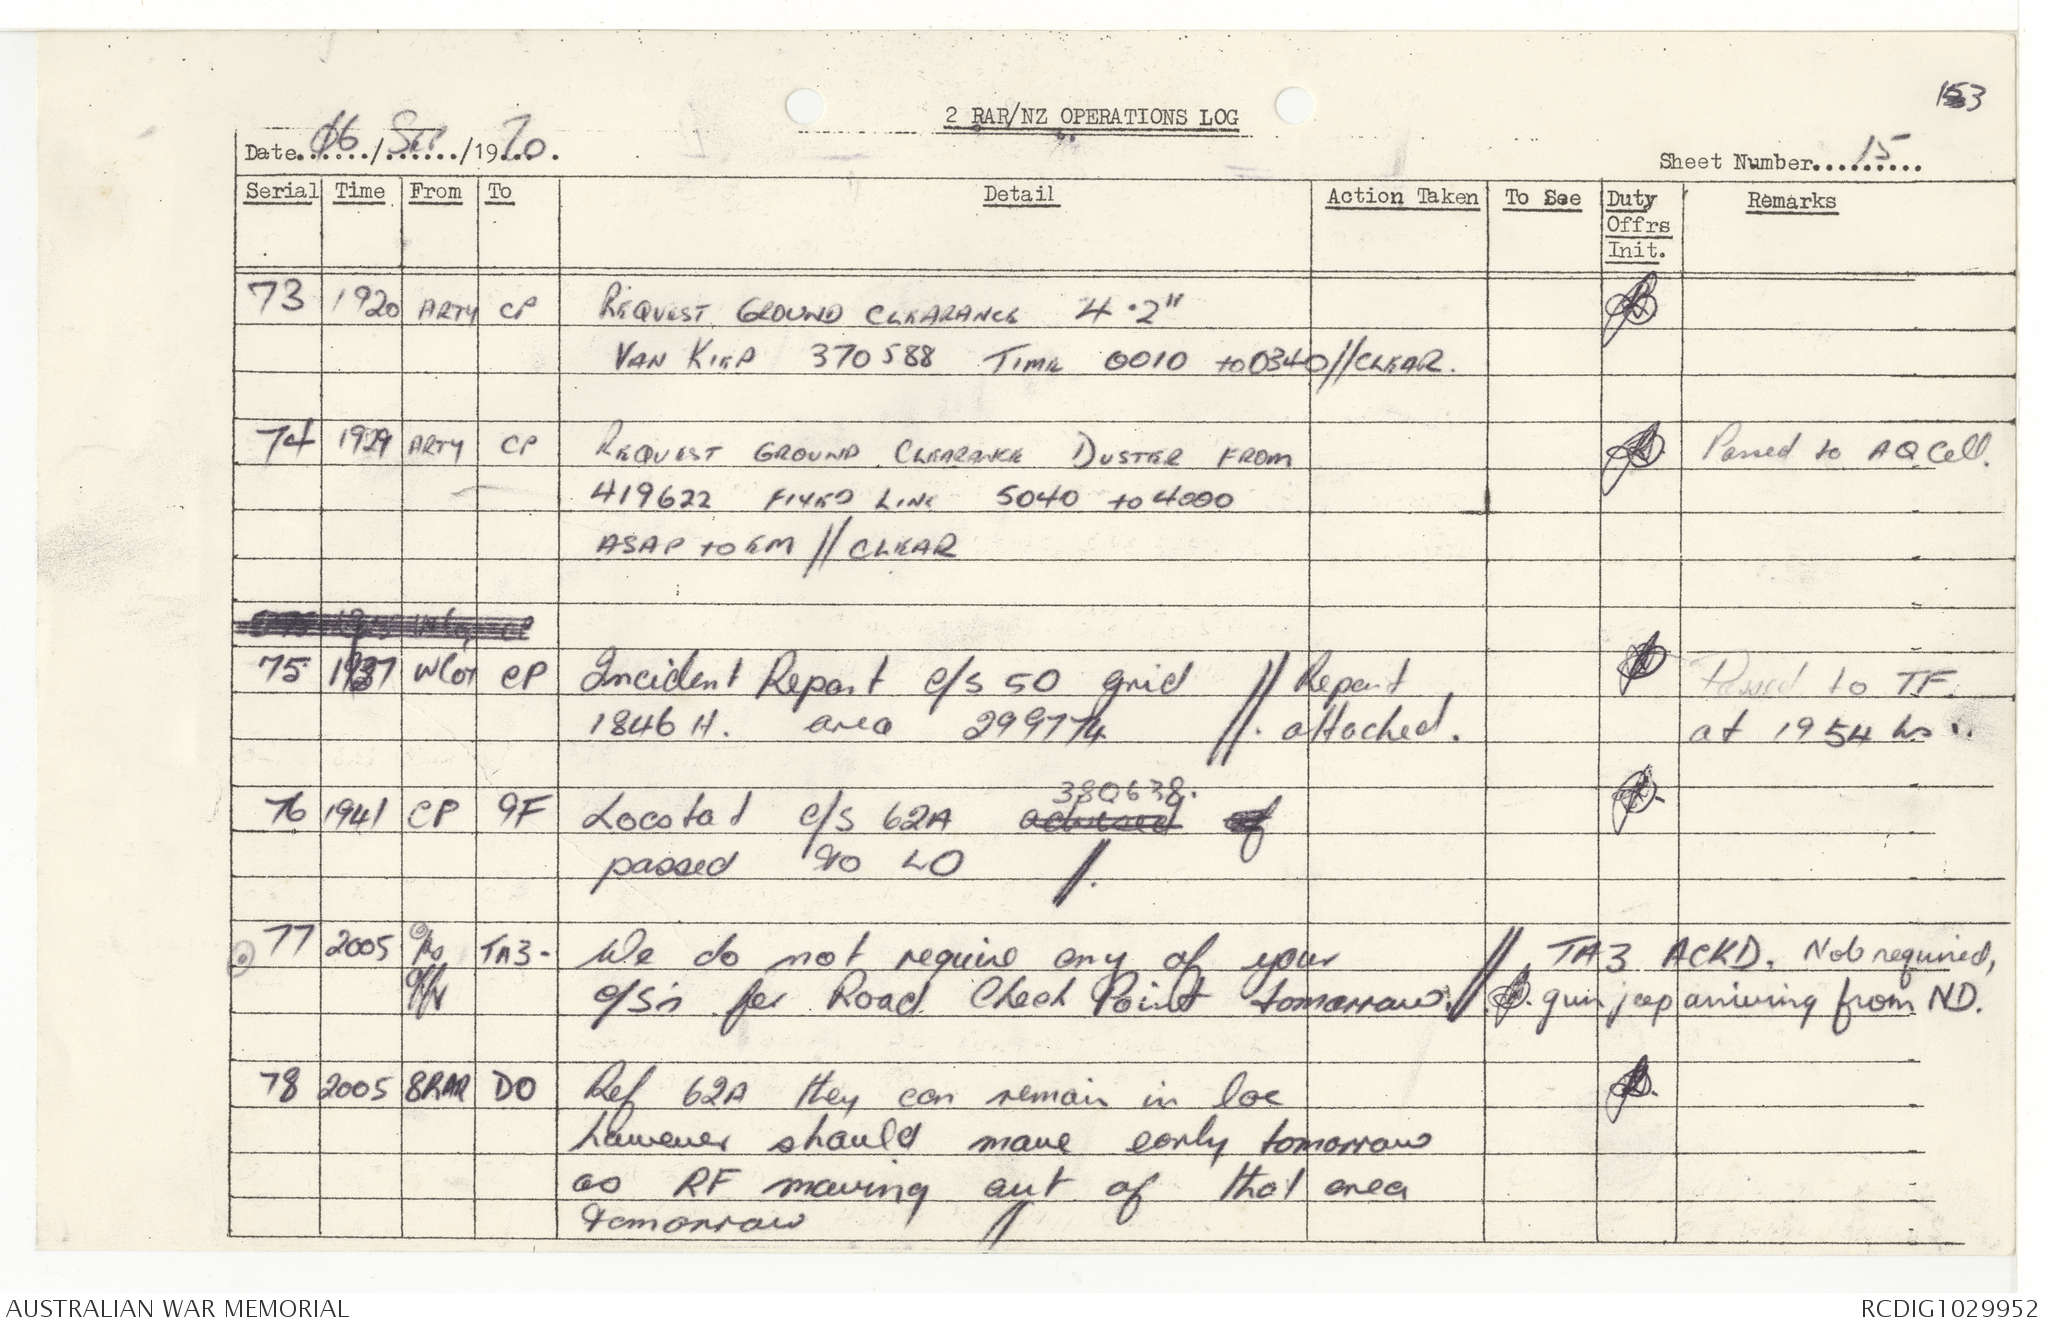 153
2 RAR/NZ OPERATIONS LOG
Date 06/Sep/1970.
Sheet Number 15
Serial Time From To Detail Action Taken To See Duty Offrs Init. Remarks
73 1920 ARTY CP REQUEST GROUND CLEARANCE 4.2"
VAN KIEP 370588 TIME 0010 to 0340 // CLEAR.
74 1929 ARTY CP REQUEST GROUND CLEARANCE DUSTER FROM Passed to AQ Cell.
419622 FIXED LINE 5040 to 4000
ASAP to EM // CLEAR
75 1937 CP Incident Report c/s 50 grid // Report Passed to TF
1846 H. area 299774 //. attached. at 1954 hrs
380638.
76 1941 CP 9F Locstat c/s 62A advised of
passed to LO //.
77 2005 TA3- We do not require any of your // TA3 ACKD. Not required,
c/s's for Road Check Point tomorrow. // gun jeep arriving from ND.
78 2005 8RAR DO Ref 62A they can remain in loc
however should move early tomorrow
as RF moving out of that area
tomorrow //
AUSTRALIAN WAR MEMORIAL
RCDIG1029952